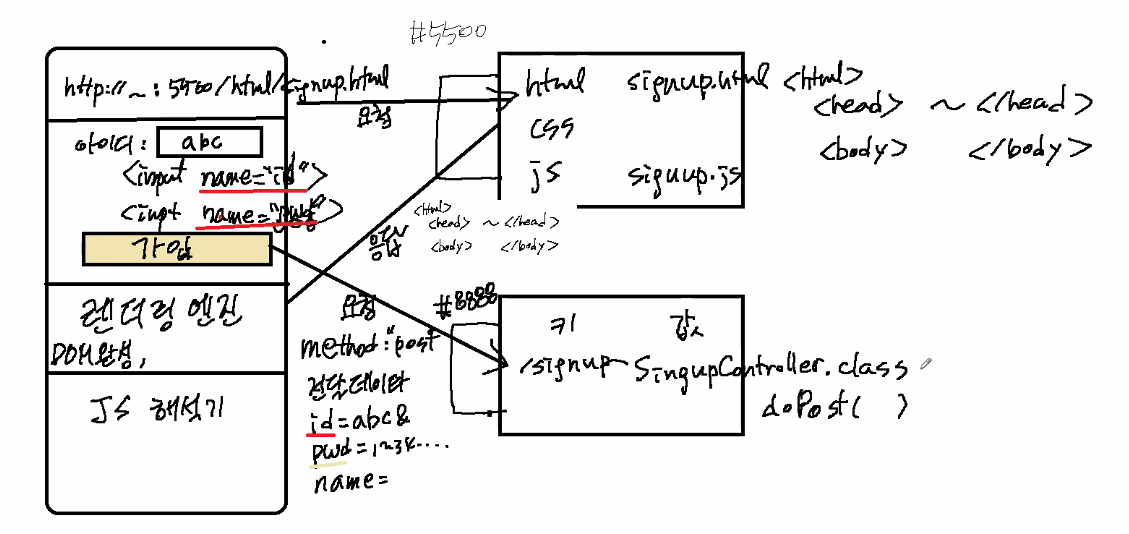 #5500
http://~:5500/html/signup.html
요청
아이디: abc
<input name="id">
<inpt name="pwd">
가입
렌더링 엔진
DOM완성,
JS 해석기
html signup.html <html>
<head> ~ </head>
css
<body> </body>
js signup.js
응답
<html>
<head> ~ </head>
<body> </body>
요청
#8888
method:"post"
전달데이터
id=abc&
pwd=1~34....
name=
키 값
/signup SingupController.class
doPost( )